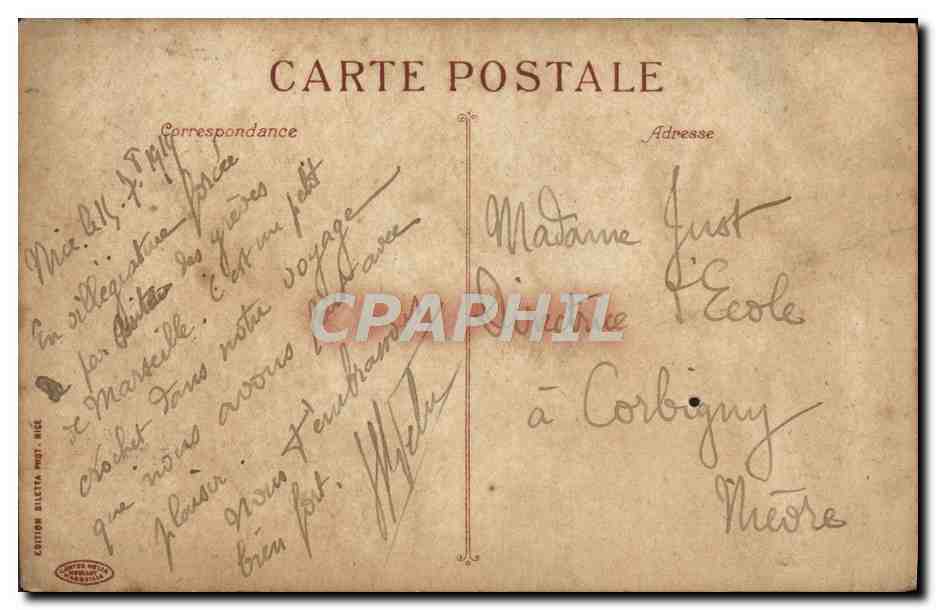 CARTE POSTALE
Correspondance
Nice. le 15. 7.bre 1919
En villégiature forcée
par suite des grèves
de Marseille. C'est un petit
crochet dans notre voyage
que nous avons fait avec
plaisir. Nous t'embrassons
bien fort.
Adresse
Madame Just
Directrice d'Ecole
à Corbigny
Nièvre
EDITION GILETTA PHOT. NICE
CARTES
MARSEILLE
CPAPHIL